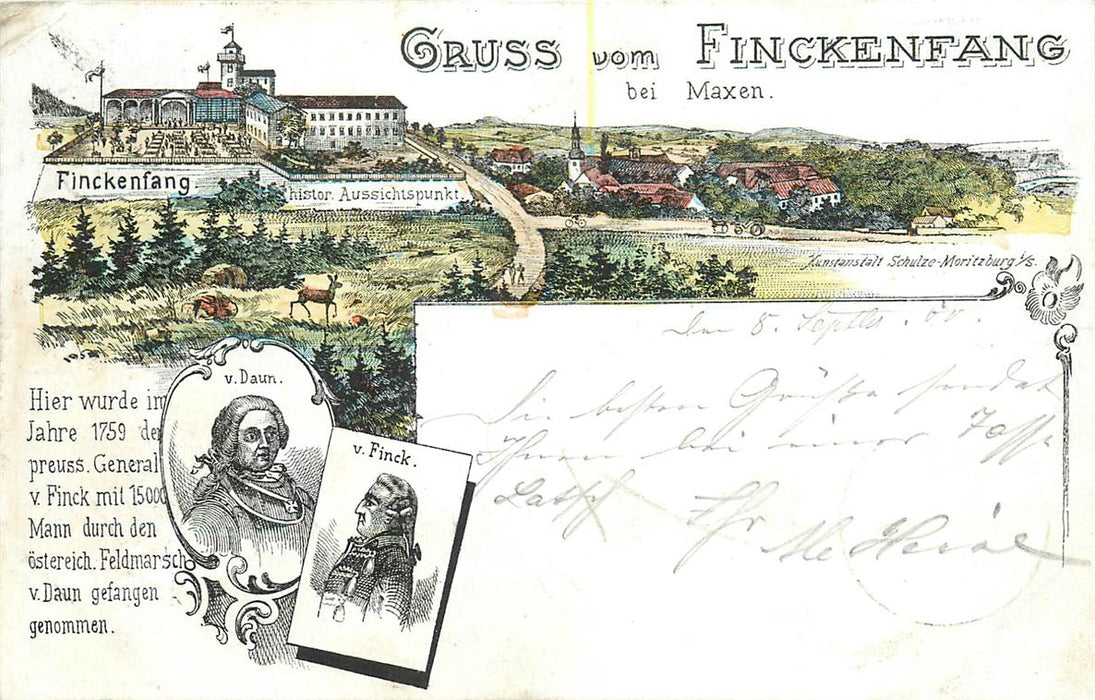 GRUSS vom FINCKENFANG
bei Maxen.
Finckenfang.
histor. Aussichtspunkt.
Kunstanstalt Schulze-Moritzburg i/S.
v. Daun.
v. Finck.
Hier wurde im
Jahre 1759 der
preuss. General
v. Finck mit 15000
Mann durch den
östereich. Feldmarsch
v. Daun gefangen
genommen.
Den 8. Septbr. 00.
Die besten Grüße sendet
Ihnen bei einer Tasse
Ihr